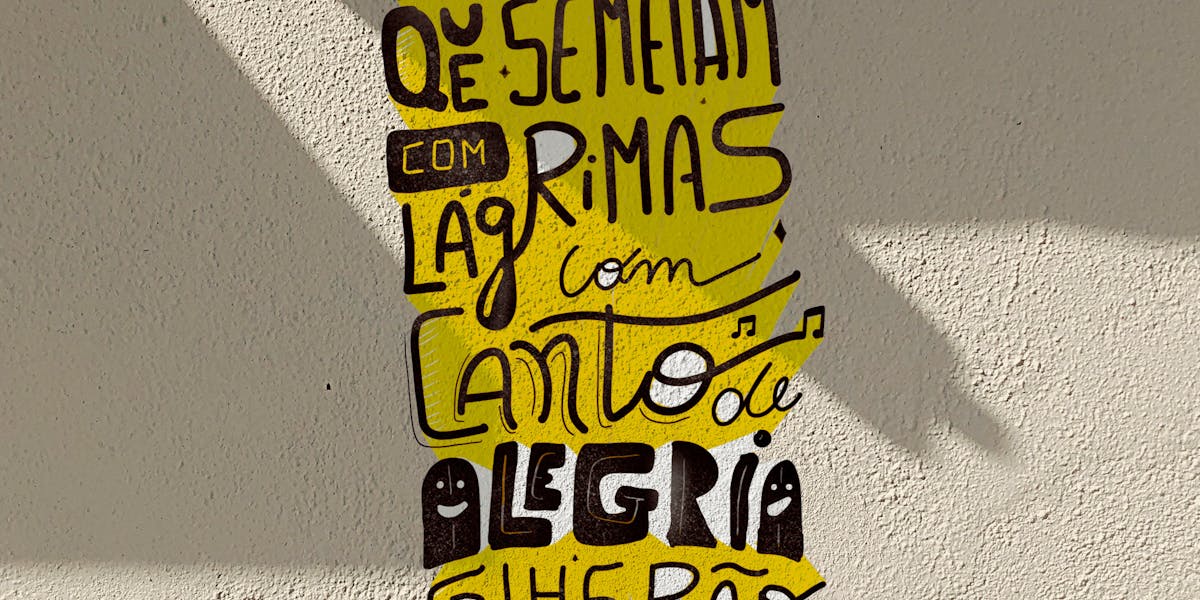 QUE SEMEIAM
COM
LÁGRIMAS
com
CANTO de
ALEGRIA